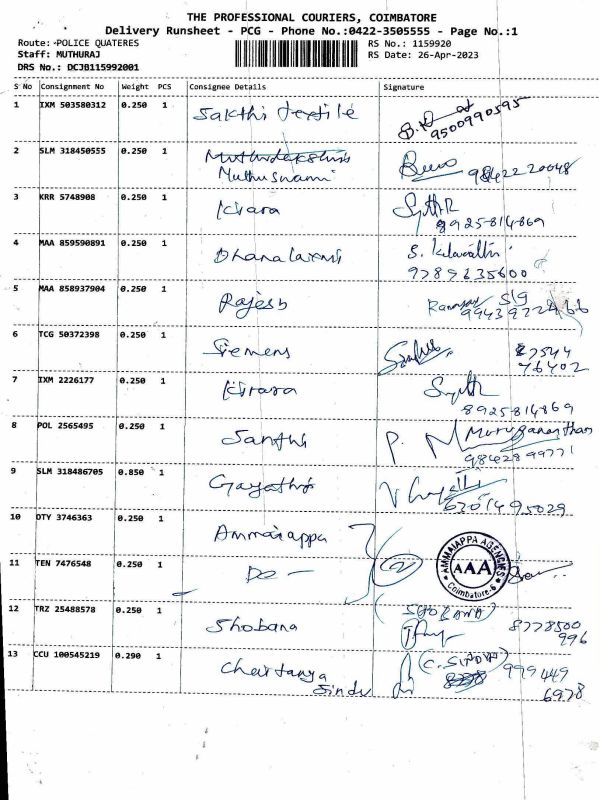 THE PROFESSIONAL COURIERS, COIMBATORE
Delivery Runsheet - PCG - Phone No.:0422-3505555 - Page No.:1
Route: -POLICE QUATERES
RS No.: 1159920
Staff: MUTHURAJ
RS Date: 26-Apr-2023
DRS No.: DCJB115992001
S No Consignment No Weight PCS Consignee Details Signature
1 IXM 503580312 0.250 1 Sakthi textile
9500990595
2 SLM 318450555 0.250 1
Muthuswami 98422 20048
3 KRR 5748908 0.250 1 Kirara
8925814869
4 MAA 859590891 0.250 1 Dhanalaxmi
9789235600
5 MAA 858937904 0.250 1 Rajesh
6 TCG 50372398 0.250 1 Siemens
76402
7 IXM 2226177 0.250 1 Kirara
8925814869
8 POL 2565495 0.250 1 Santhi P. Muruganantham
9842899771
9 SLM 318486705 0.850 1 Gayathri
6301495029
10 OTY 3746363 0.250 1 Ammaiappa
AMMAIAPPA AGENCIES
AAA
Coimbatore-6
11 TEN 7476548 0.250 1 Do -
12 TRZ 25488578 0.250 1 Shobana (SHOBANA)
8778500
996
13 CCU 100545219 0.290 1 Chaitanya (C. SINDU) 999449
Sindu 6978